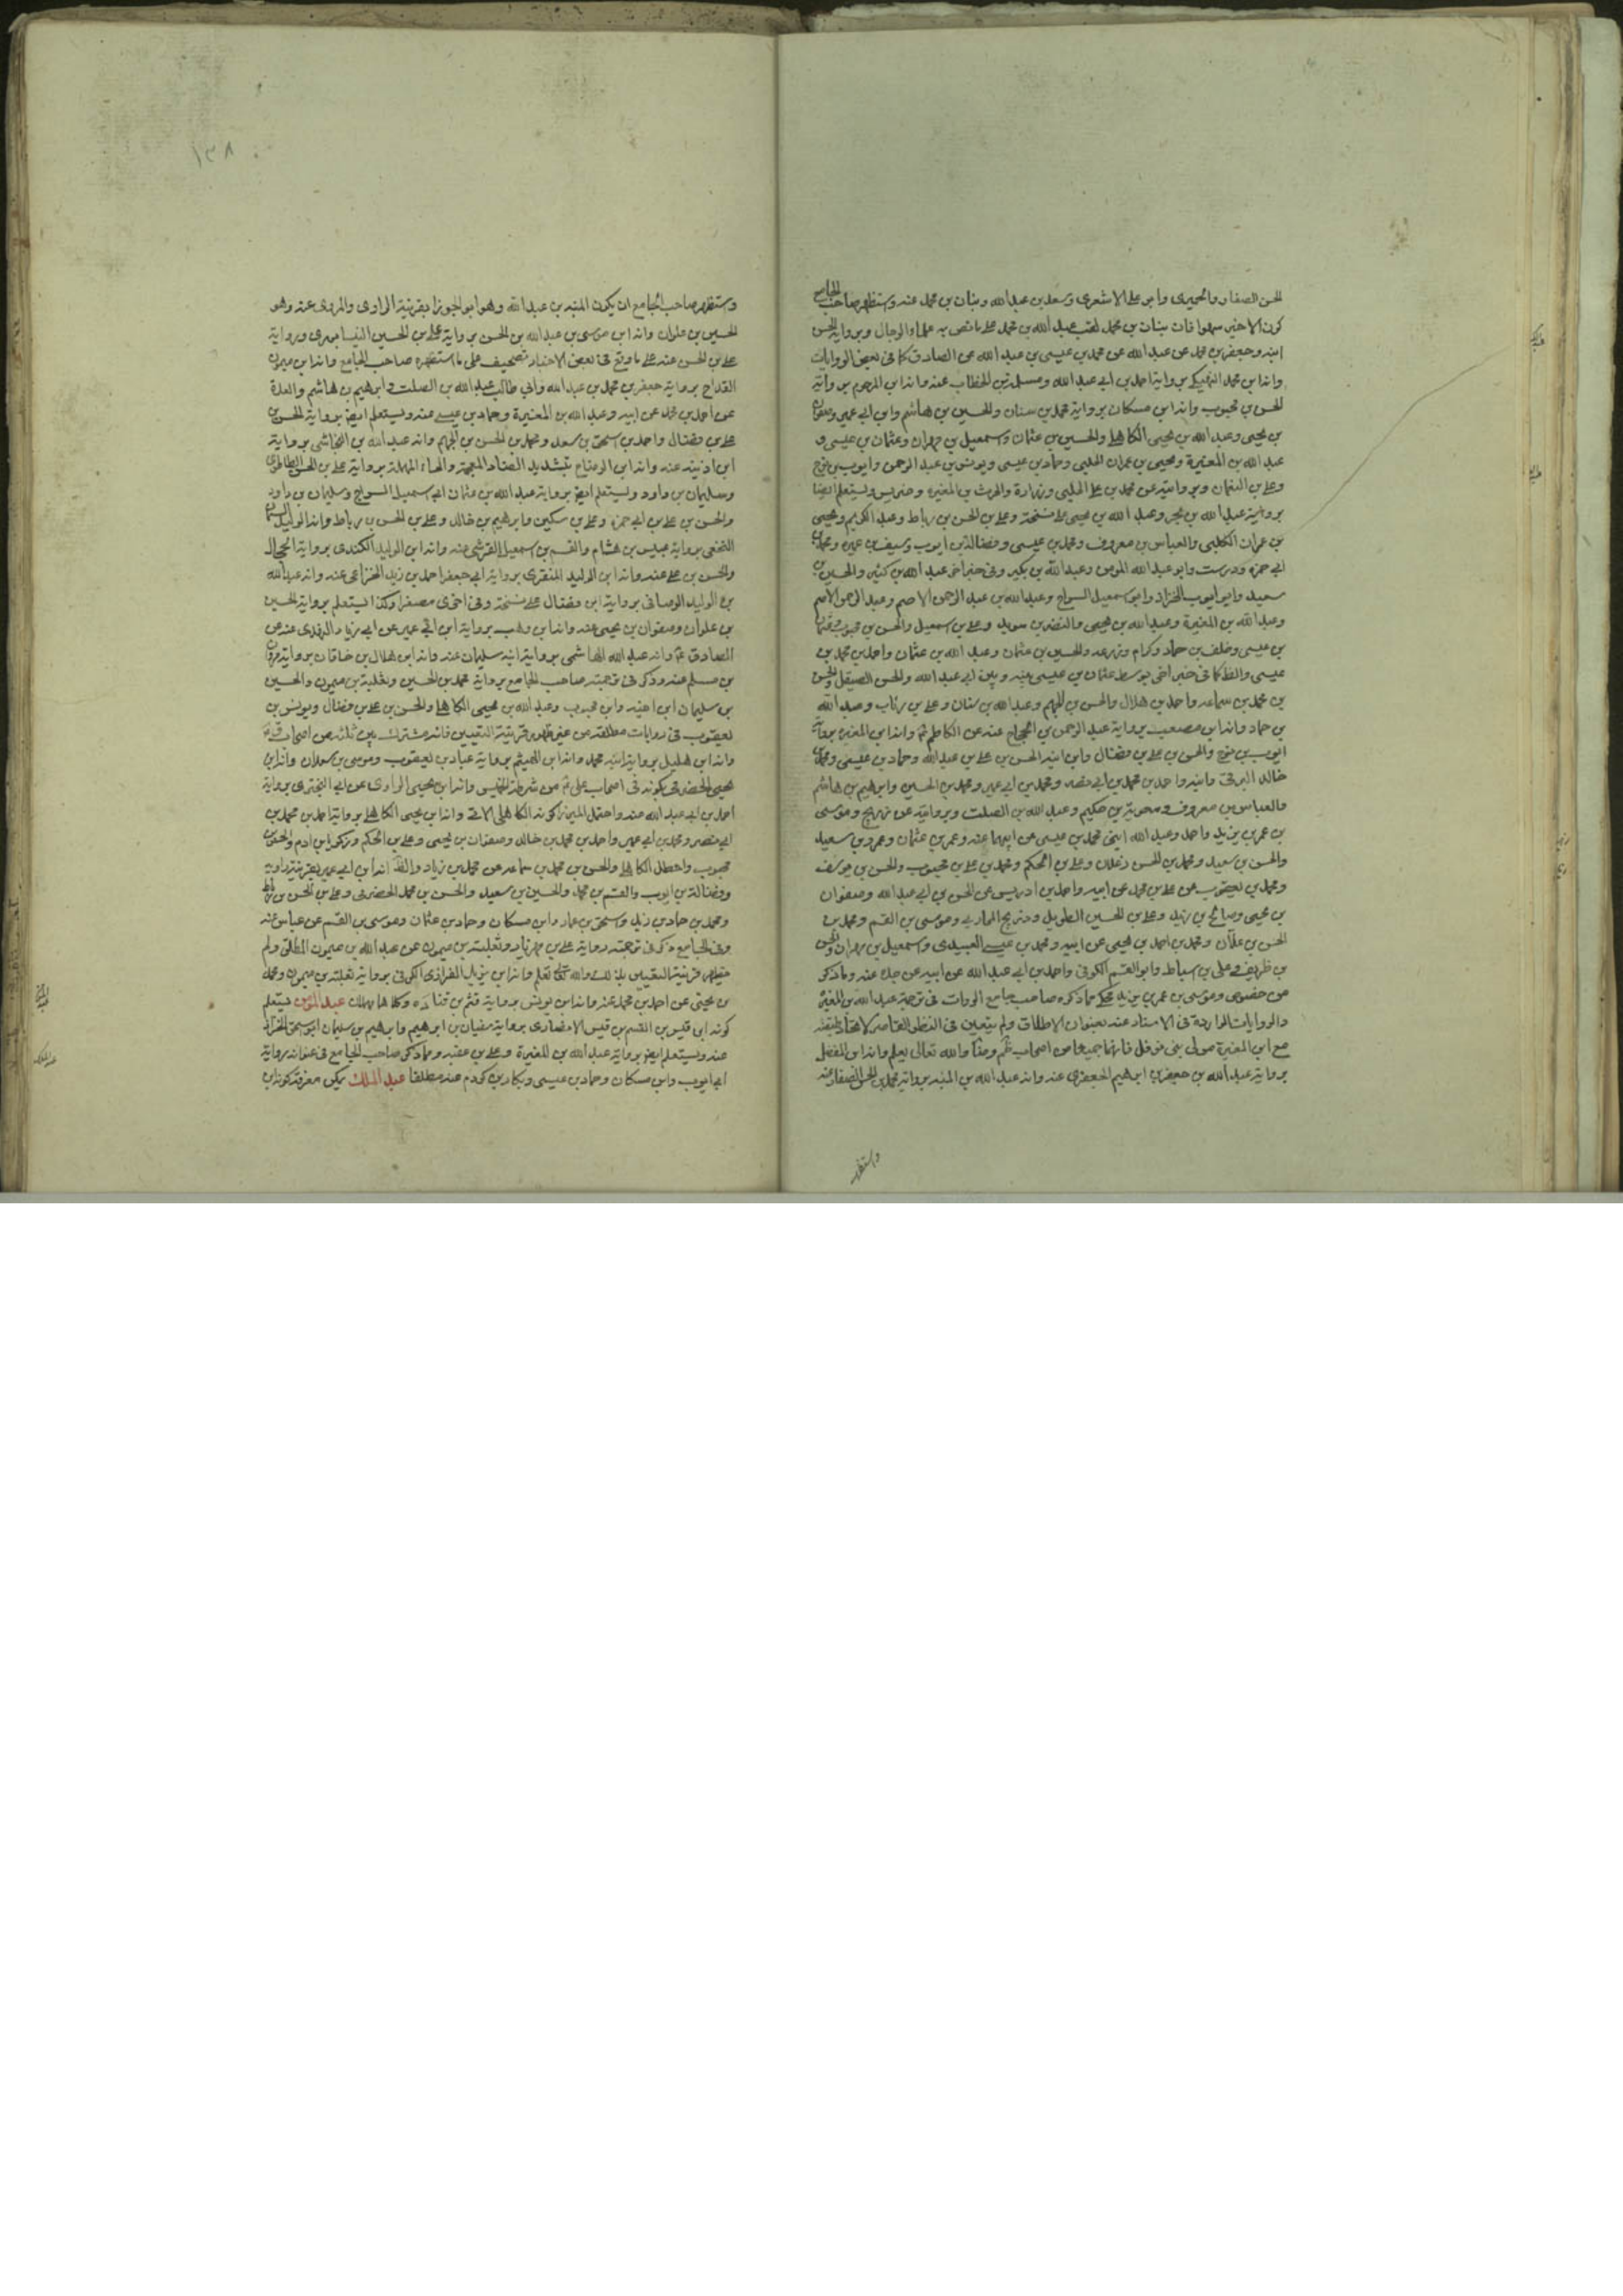 الحسن الصفار والحميرى وابو على الاشعرى وسعد بن عبد الله وبنان بن محمد عنه واستظهر صاحب الجامع
كون الاخير سهوا فان بنان بن محمد لقب عبد الله بن محمد على ما نص به علماء الرجال وبرواية الحسن
ابنه وجعفر بن محمد عن عبد الله عن محمد بن عيسى بن عبد الله عن الصادق كما فى بعض الروايات
وانه ابن محمد النهيكى برواية احمد بن ابى عبد الله ومسلمة بن الخطاب عنه وانه ابن المرحوم برواية
الحسن بن محبوب وانه ابن مسكان برواية محمد بن سنان والحسين بن هاشم وابن ابى عمير وصفوان
بن يحيى وعبد الله بن يحيى الكاهلى والحسين بن عثمان واسمعيل بن مهران وعثمان بن عيسى و
عبد الله بن المغيرة ويحيى بن عمران الحلبى وحماد بن عيسى ويونس بن عبد الرحمن وايوب بن نوح
وعلى بن النعمان وبروايته عن محمد بن على الحلبى وزرارة والحرث بن المغيرة وضريس ويستعلم ايضا
برواية عبد الله بن بحر وعبد الله بن يحيى على نسخة وعلى بن الحسن بن رباط وعبد الكريم ويحيى
بن عمران الكلبى والعباس بن معروف ومحمد بن عيسى وفضالة بن ايوب وسيف بن عميرة ومحمد بن
ابى حمزة ودرست وابو عبد الله المومن وعبد الله بن بكير وفى خبر اخر عبد الله بن كثير والحسين بن
سعيد وابو ايوب الخزاز وابو اسمعيل السراج وعبد الله بن عبد الرحمن الاصم وعبد الرحمن الاصم
وعبد الله بن المغيرة وعبد الله بن يحيى والنضر بن سويد وعلى بن اسمعيل والحسن بن محبوب وعثمان
بن عيسى وخلف بن حماد وكرام وزرعه والحسين بن عثمان وعبد الله بن عثمان واحمد بن محمد بن
عيسى والظ كما فى خبر اخر توسط عثمان بن عيسى بينه وبين ابى عبد الله والحسن الصيقل والحسن
بن محمد بن سماعه واحمد بن هلال والحسن بن الجهم وعبد الله بن سنان وعلى بن رئاب وعبد الله
بن حماد وانه ابن مصعب برواية عبد الرحمن بن الحجاج عنه عن الكاظم ع وانه ابن المغيرة برواية
ايوب بن نوح والحسن بن على بن فضال وابن ابنه الحسن بن على بن عبد الله وحماد بن عيسى ومحمد بن
خالد البرقى وابنه واحمد بن محمد بن ابى نصر ومحمد بن ابى عمير ومحمد بن الحسين وابراهيم بن هاشم
والعباس بن معروف ومعوية بن حكيم وعبد الله بن الصلت وبروايته عن ذريح وموسى
بن عمر بن يزيد واحمد وعبد الله ابنى محمد بن عيسى عن ابيهما عنه وعمر بن عثمان وعمرو بن سعيد
والحسن بن سعيد ومحمد بن الحسن زعلان وعلى بن الحكم ومحمد بن على بن محبوب والحسن بن يوسف
ومحمد بن يعقوب عن على بن محمد عن ابيه واحمد بن ادريس عن الحسن بن ابى عبد الله وصفوان
بن يحيى وصالح بن يزيد وعلى بن الحسين الطويل وذريح المحاربى وموسى بن القسم ومحمد بن
الحسن بن علان ومحمد بن احمد بن يحيى عن ابيه ومحمد بن عيسى العبيدى واسمعيل بن مهران والحسن
بن ظريف وعلى بن اسباط وابو القسم الكوفى واحمد بن ابى عبد الله عن ابيه عن جده عنه وما ذكر
من حفص وموسى بن عمر بن يزيد محكى ما ذكره صاحب جامع الروات فى ترجمة عبد الله بن المغيرة
والروايات الواردة فى الاسناد عنه بعنوان الاطلاق ولم يتعين فى النظر القاصر
مع ابن المغيرة مولى بنى نوفل فانهما جميعا من اصحاب ظم وضا والله تعالى يعلم وانه ابن المفضل
برواية عبد الله بن جعفر بن ابراهيم الجعفرى عنه وانه عبد الله بن المنبه برواية محمد بن الحسن الصفار عنه
واستظهر
١٣٨
واستظهر صاحب الجامع ان يكون المنبه بن عبد الله وهو ابو الجوزا بقرينة الراوى والمروى عنه وهو
الحسين بن علوان وانه ابن موسى بن عبد الله بن الحسن برواية على بن الحسين النيسابورى وبرواية
على بن الحسن عنه على ما وقع فى بعض الاخبار تصحيف على ما استظهره صاحب الجامع وانه ابن ميمون
القداح برواية جعفر بن محمد بن عبد الله وابى طالب عبد الله بن الصلت وابراهيم بن هاشم والعدة
عن احمد بن محمد عن ابيه وعبد الله بن المغيرة وحماد بن عيسى عنه ويستعلم ايضا برواية الحسن بن
على بن فضال واحمد بن اسحق بن سعد ومحمد بن الحسن بن الجهم وانه عبد الله بن النجاشى برواية
ابن اذينه عنه وانه ابن الوضاح بتشديد الضاد المعجمة والحاء المهملة برواية على بن الحسن الطاطرى
وسليمان بن داود ويستعلم ايضا برواية عبد الله بن عثمان ابى اسمعيل السراج وسليمان بن داود
والحسن بن على بن ابى حمزة وعلى بن سكين وابراهيم بن خالد وعلى بن الحسن بن رباط وانه الوليد السمان
النخعى برواية عبيس بن هشام والقسم بن اسمعيل القرشى عنه وانه ابن الوليد الكندى برواية الحجال
والحسن بن على عنه وانه ابن الوليد المنقرى برواية ابى جعفر احمد بن زيد الخزاعى عنه وانه عبد الله
بن الوليد الوصافى برواية ابن فضال على نسخة وفى اخرى مصغرا وكذا يستعلم برواية الحسين
بن علوان وصفوان بن يحيى عنه وانه ابن وهب برواية ابن ابى عمير عن ابى زياد النهدى عنه عن
الصادق ع وانه عبد الله الهاشمى برواية ابنه سليمان عنه وانه ابن هلال بن خاقان برواية مروان
بن مسلم عنه وذكر فى ترجمته صاحب الجامع برواية محمد بن الحسين وثعلبة بن ميمون والحسين
بن سليمان ابن اخيه وابن محبوب وعبد الله بن يحيى الكاهلى والحسن بن على بن فضال ويونس بن
يعقوب فى روايات مطلقة من غير ظهور قرينة التقييد فانه مشترك بين ثلثه من اصحاب ق
وانه ابن هليل برواية ابنه محمد وانه ابن الهيثم برواية عباد بن يعقوب وموسى بن سعدان وانه ابن
يحيى الحضرمى بكونه فى اصحاب على ع من شرطة الخميس وانه ابن يحيى الراوى عن ابى البخترى برواية
احمد بن ابى عبد الله عنه واحتمل الميرزا كونه الكاهلى الاتى وانه ابن يحيى الكاهلى برواية احمد بن محمد بن
ابى نصر ومحمد بن ابى عمير واحمد بن محمد بن خالد وصفوان بن يحيى وعلى بن الحكم وزكريا بن ادم والحسن بن
محبوب واخطل الكاهلى والحسن بن محمد بن سماعه عن محمد بن زياد والظ انه ابن ابى عمير بقرينة
وفضالة بن ايوب والقسم بن محمد والحسين بن سعيد والحسن بن محمد الحضرمى وعلى بن الحسن بن رباط
ومحمد بن حماد بن زيد واسحق بن عمار وابن مسكان وحماد بن عثمان وموسى بن القسم عن عباس عنه
وفى الجامع ذكر فى ترجمته رواية على بن مهزيار وثعلبة بن ميمون عن عبد الله بن ميمون المطلق ولم
يظهر قرينة التقييد بذلك والله تعالى يعلم وانه ابن يزيد الفزارى الكوفى برواية ثعلبة بن ميمون ومحمد
بن يحيى عن احمد بن محمد عنه وانه ابن يونس برواية قثم بن قتاده وكلاهما مهملان عبد المؤمن فيستعلم
كونه ابن قيس بن القسم بن قيس الانصارى برواية سفيان بن ابراهيم وابراهيم بن سليمان ابو اسحق الخزاز
عنه ويستعلم ايضا برواية عبد الله بن المغيرة وعلى بن عقبه وما ذكر صاحب الجامع فى عنوانه برواية
ابى ايوب وابن مسكان وحماد بن عيسى وبكار بن كردم عنه مطلقا عبد الملك يمكن معرفة كونه ابن
عبد المؤمن
عبد الملك